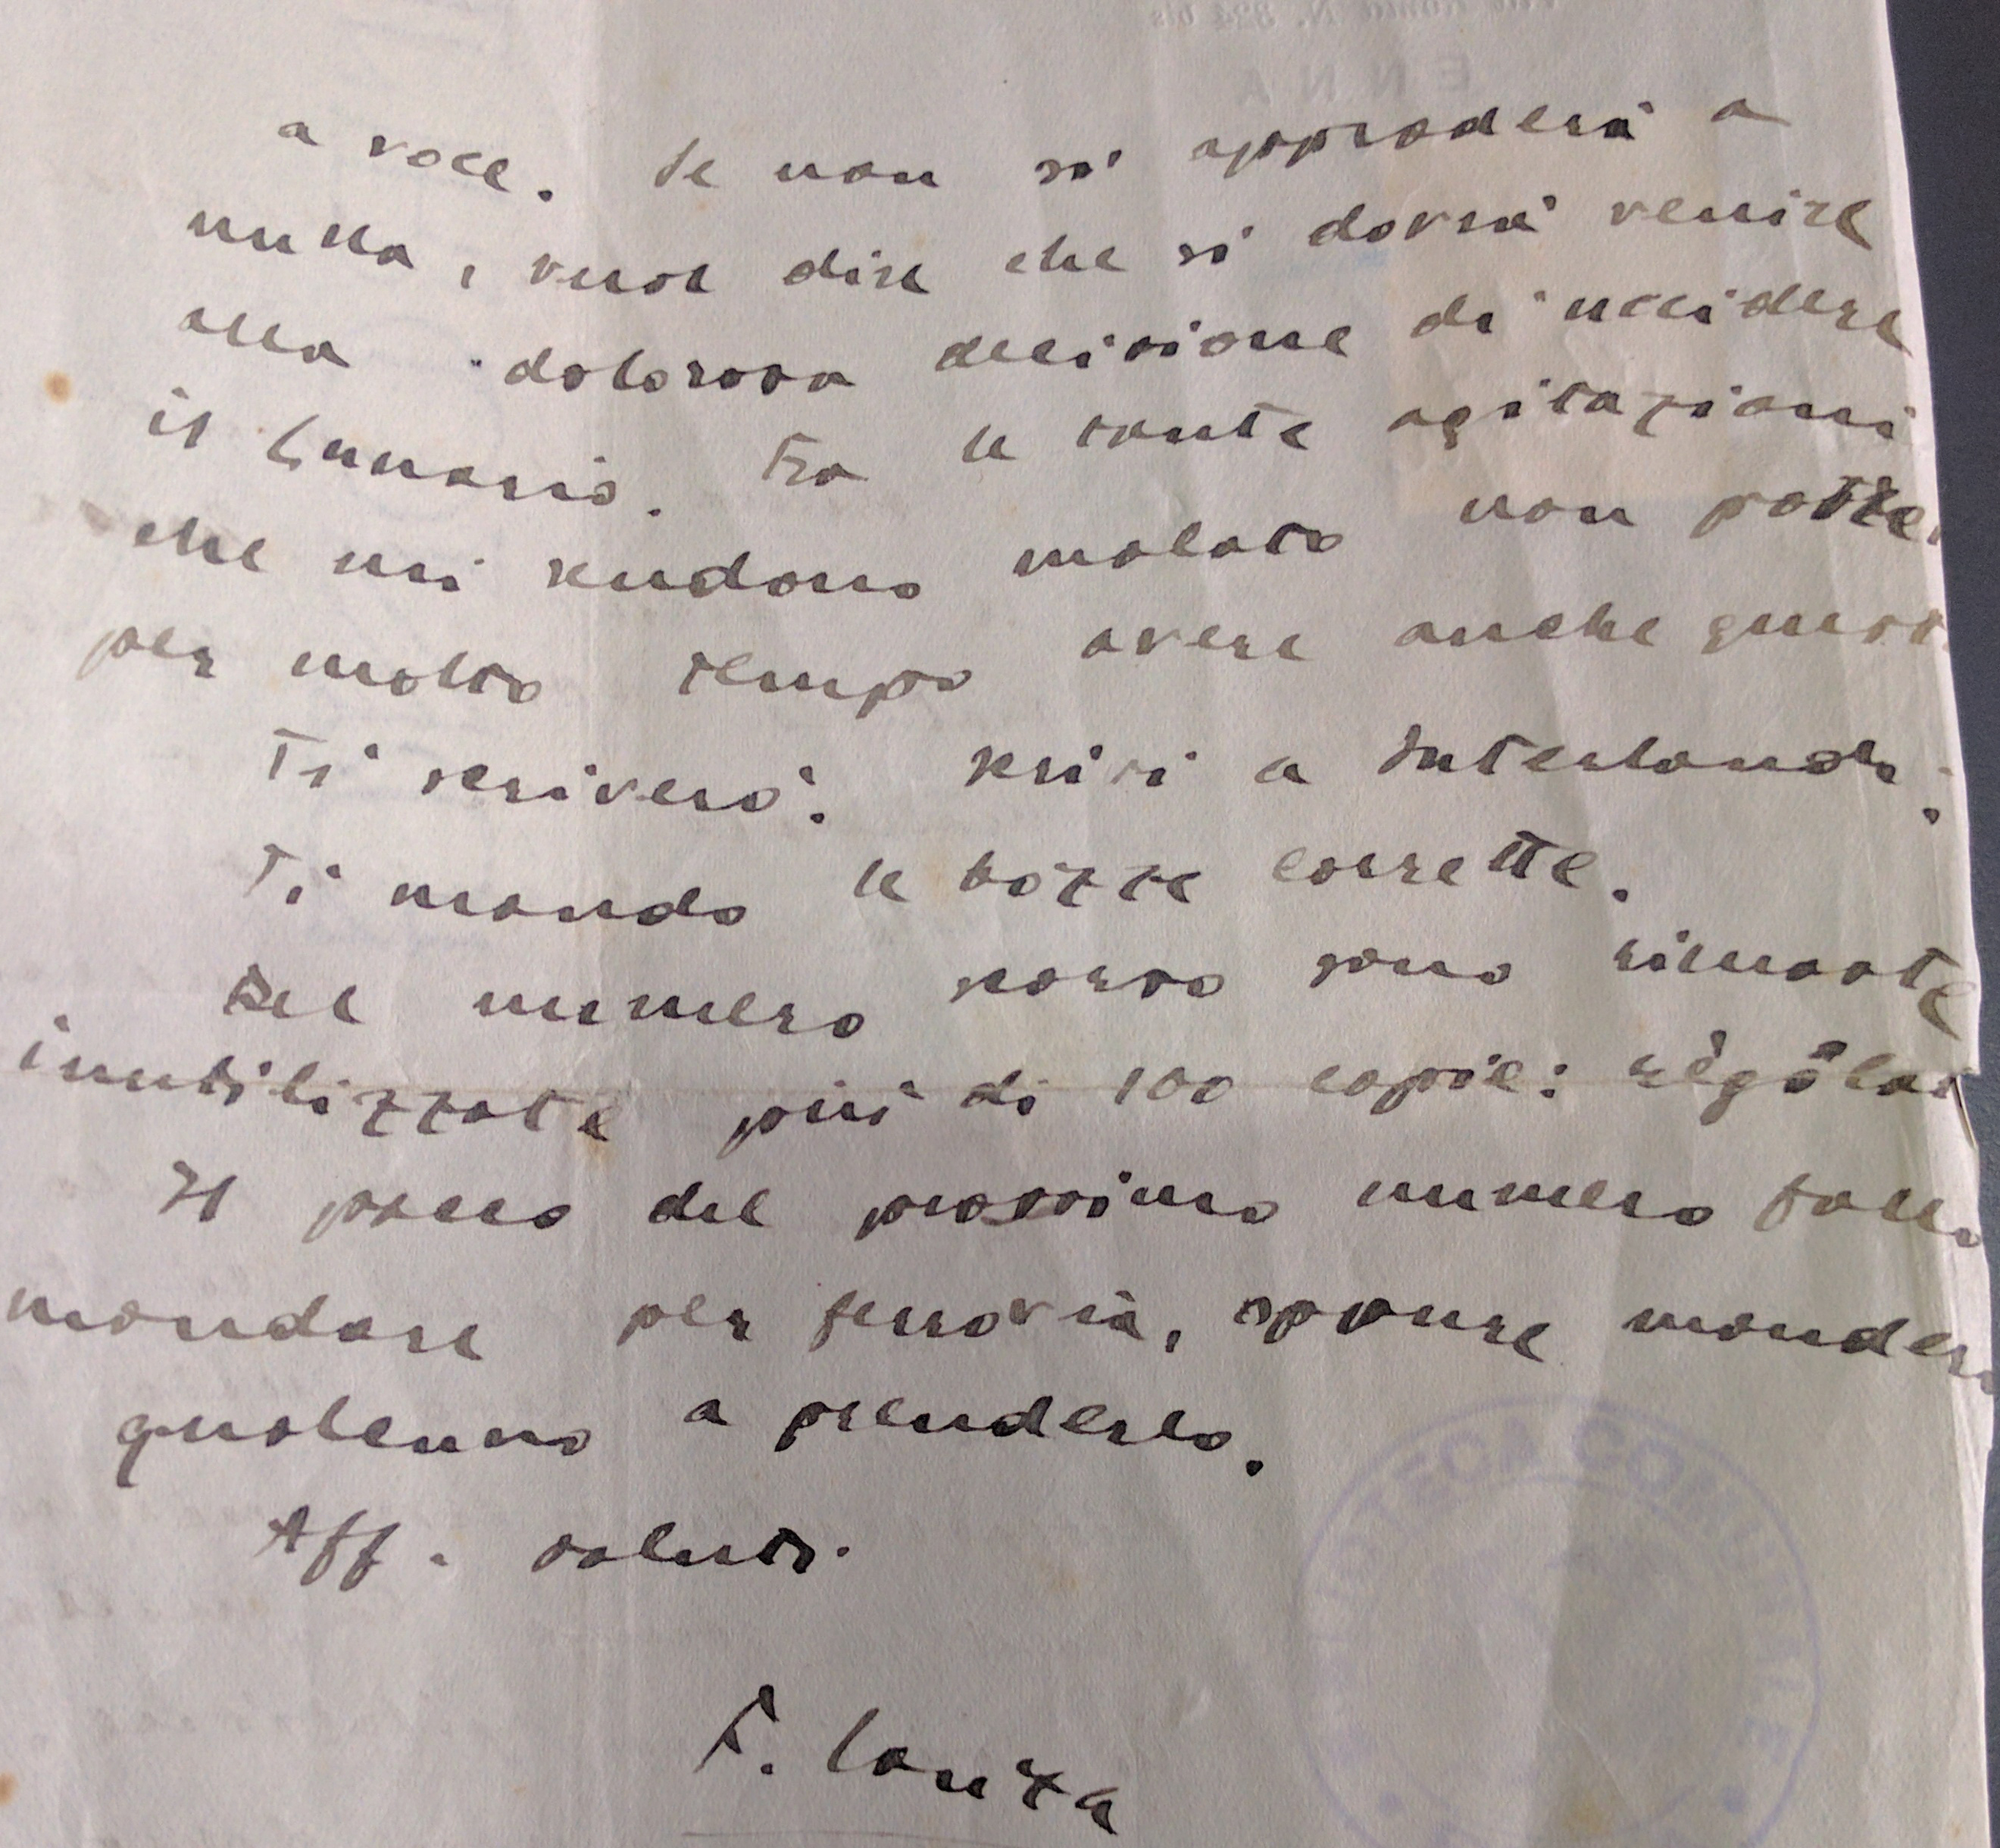 Viale Roma N. 324 bis
ENNA
a voce. Se non si approderà a
nulla, vuol dire che si dovrà venire
alla dolorosa decisione di uccidere
il Lunario. Fra le tante agitazioni
che mi rendono malato non potrei
per molto tempo avere anche questa
Ti scriverò. Scrivi a Interlandi.
Ti mando le bozze corrette.
Del numero scorso sono rimaste
inutilizzate più di 100 copie: regolati
Il pacco del prossimo numero fallo
mandare per ferrovia, oppure manderò
qualcuno a prenderlo.
Aff. saluti.
F. Lanza
BIBLIOTECA COMUNALE